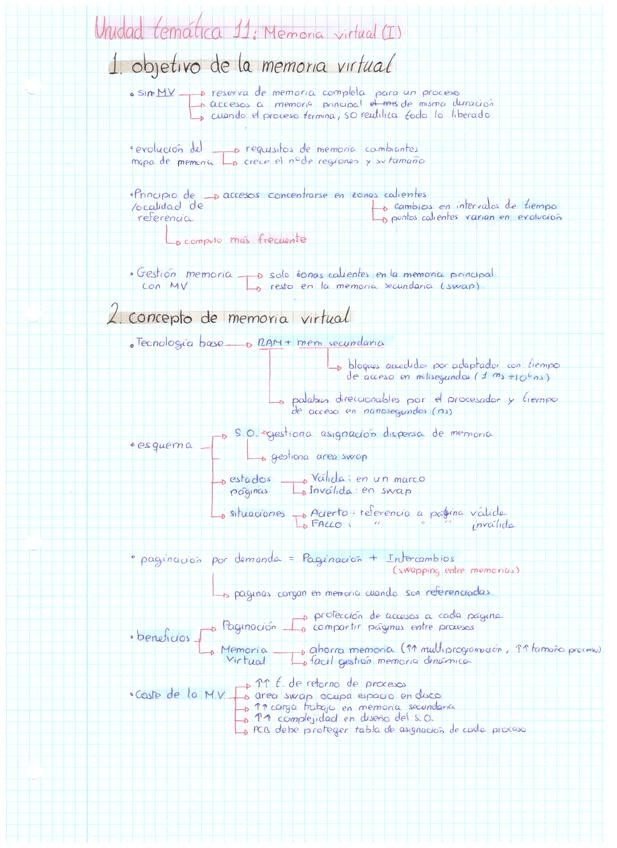 Unidad temática 11: Memoria virtual (I)
1. objetivo de la memoria virtual
• sin MV → reserva de memoria completa para un proceso
→ accesos a memoria principal de misma duración
→ cuando el proceso termina, SO reutiliza todo lo liberado
• evolución del → requisitos de memoria cambiantes
mapa de memoria → crece el nº de regiones y su tamaño
• Principio de → accesos concentrarse en zonas calientes
localidad de → cambios en intervalos de tiempo
referencia → puntos calientes varian en evolución
→ computo más frecuente
• Gestión memoria → solo zonas calientes en la memoria principal
con MV → resto en la memoria secundaria (swap)
2. concepto de memoria virtual
• Tecnología base → RAM + mem secundaria
→ bloques accedidos por adaptador con tiempo
de acceso en milisegundos (1 ms = 10⁶ ns)
→ palabras direccionables por el procesador y tiempo
de acceso en nanosegundos (ns)
• esquema → S.O. → gestiona asignación dispersa de memoria
→ gestiona area swap
→ estados → Válida: en un marco
páginas → Inválida: en swap
→ situaciones → Acierto: referencia a página válida
→ FALLO: " " " inválida
• paginación por demanda = Paginación + Intercambios
(swapping entre memorias)
→ paginas cargan en memoria cuando son referenciadas
• beneficios → Paginación → protección de accesos a cada página
→ compartir páginas entre procesos
→ Memoria → ahorra memoria (↑↑ multiprogramación, ↑↑ tamaño proceso)
Virtual → facil gestión memoria dinámica
• Coste de la MV → ↑↑ t. de retorno de procesos
→ area swap ocupa espacio en disco
→ ↑↑ carga trabajo en memoria secundaria
→ ↑↑ complejidad en diseño del S.O.
→ PCB debe proteger tabla de asignación de cada proceso